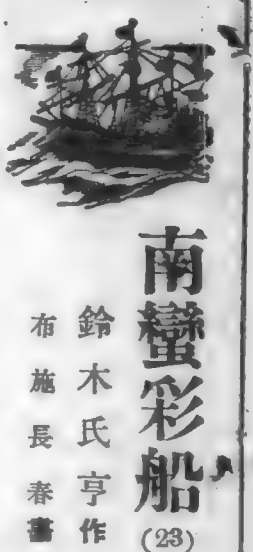 南蠻彩船
(23)
鈴木氏亨作
布施長春畫